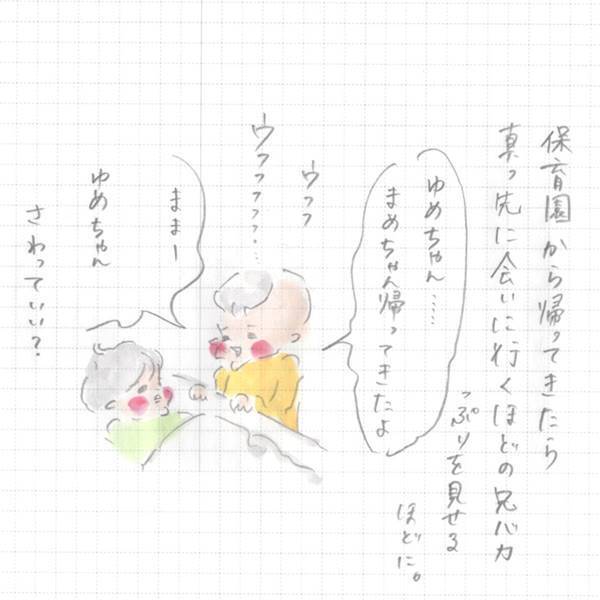 保育園から帰ってきたら
真っ先に会いに行くほどの兄バカ
っぷりを見せる
ほどに。
ゆめちゃん……
まめちゃん帰ってきたよ
ウフフ
ウフフフフ……
ままー
ゆめちゃん
さわっていい？